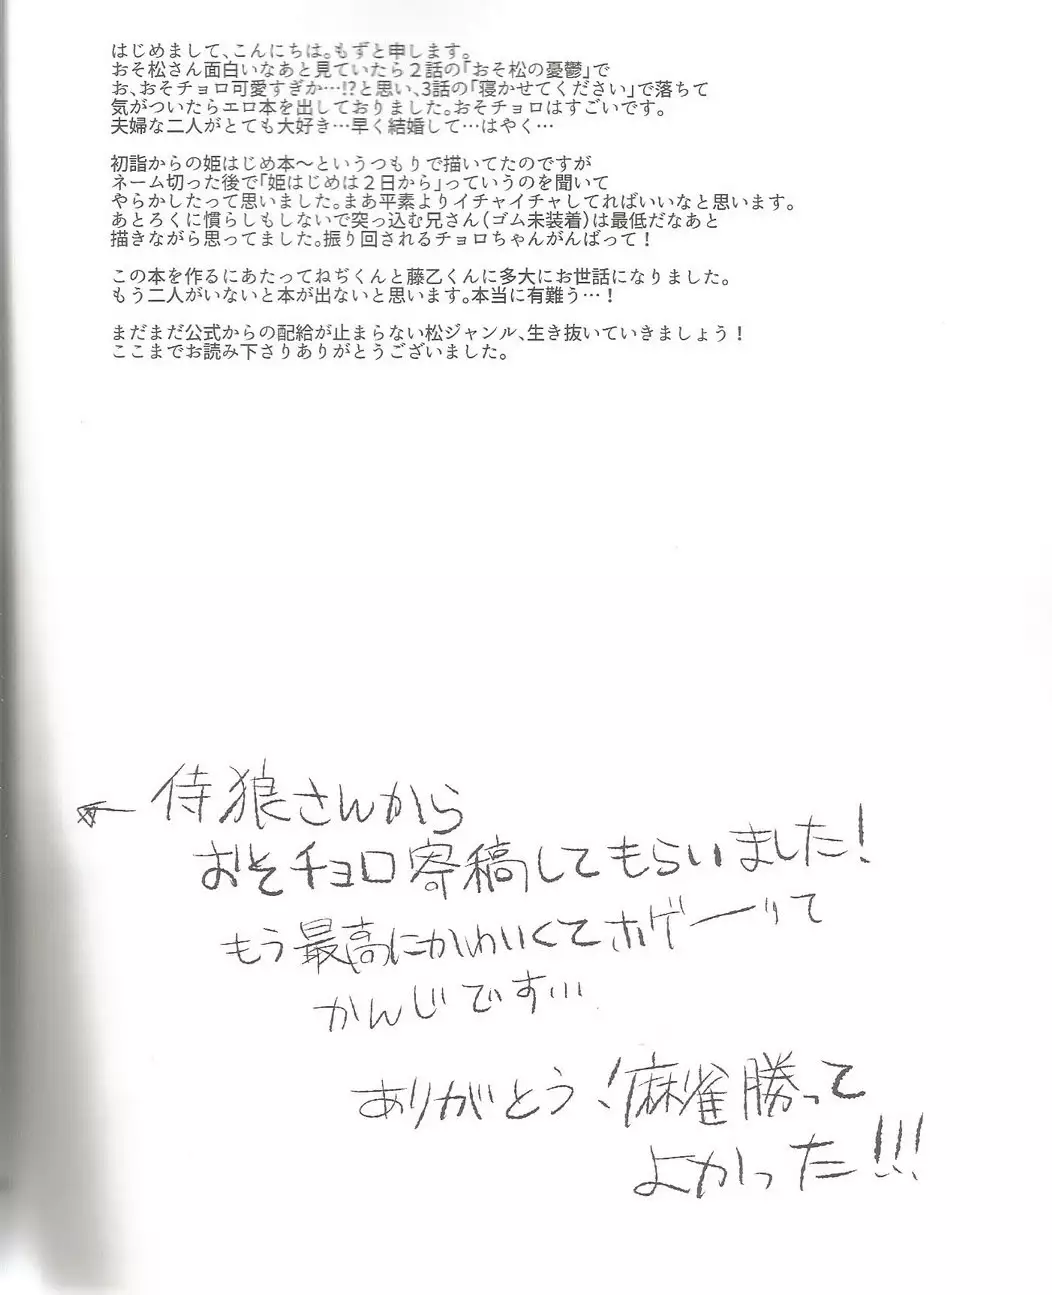 はじめまして、こんにちは。もずと申します。
おそ松さん面白いなあと見ていたら２話の「おそ松の憂鬱」で
お、おそチョロ可愛すぎか…!?と思い、3話の「寝かせてください」で落ちて
気がついたらエロ本を出しておりました。おそチョロはすごいです。
夫婦な二人がとても大好き…早く結婚して…はやく…
初詣からの姫はじめ本～というつもりで描いてたのですが
ネーム切った後で「姫はじめは２日から」っていうのを聞いて
やらかしたって思いました。まあ平素よりイチャイチャしてればいいなと思います。
あとろくに慣らしもしないで突っ込む兄さん（ゴム未装着）は最低だなあと
描きながら思ってました。振り回されるチョロちゃんがんばって！
この本を作るにあたってねぢくんと藤乙くんに多大にお世話になりました。
もう二人がいないと本が出ないと思います。本当に有難う…！
まだまだ公式からの配給が止まらない松ジャンル、生き抜いていきましょう！
ここまでお読み下さりありがとうございました。
← 侍狼さんから
おそチョロ寄稿してもらいました！
もう最高にかわいくてホゲーって
かんじです…
ありがとう！麻雀勝って
よかった!!!